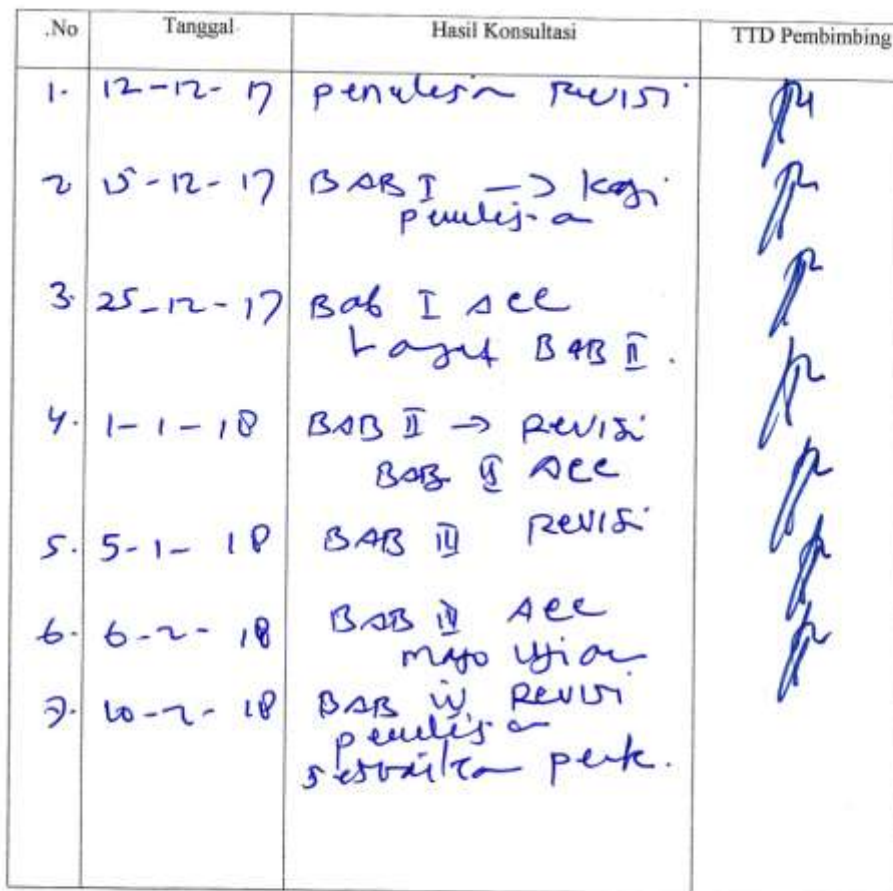 .No Tanggal Hasil Konsultasi TTD Pembimbing
1. 12-12-17 penulisan Revisi
2 15-12-17 BAB I →
penulisan
3. 25-12-17 Bab I ACC
BAB II.
4. 1-1-18 BAB II → Revisi
BAB II ACC
5. 5-1-18 BAB III Revisi
6. 6-2-18 BAB ACC
7. 10-2-18 BAB IV Revisi
penulisan